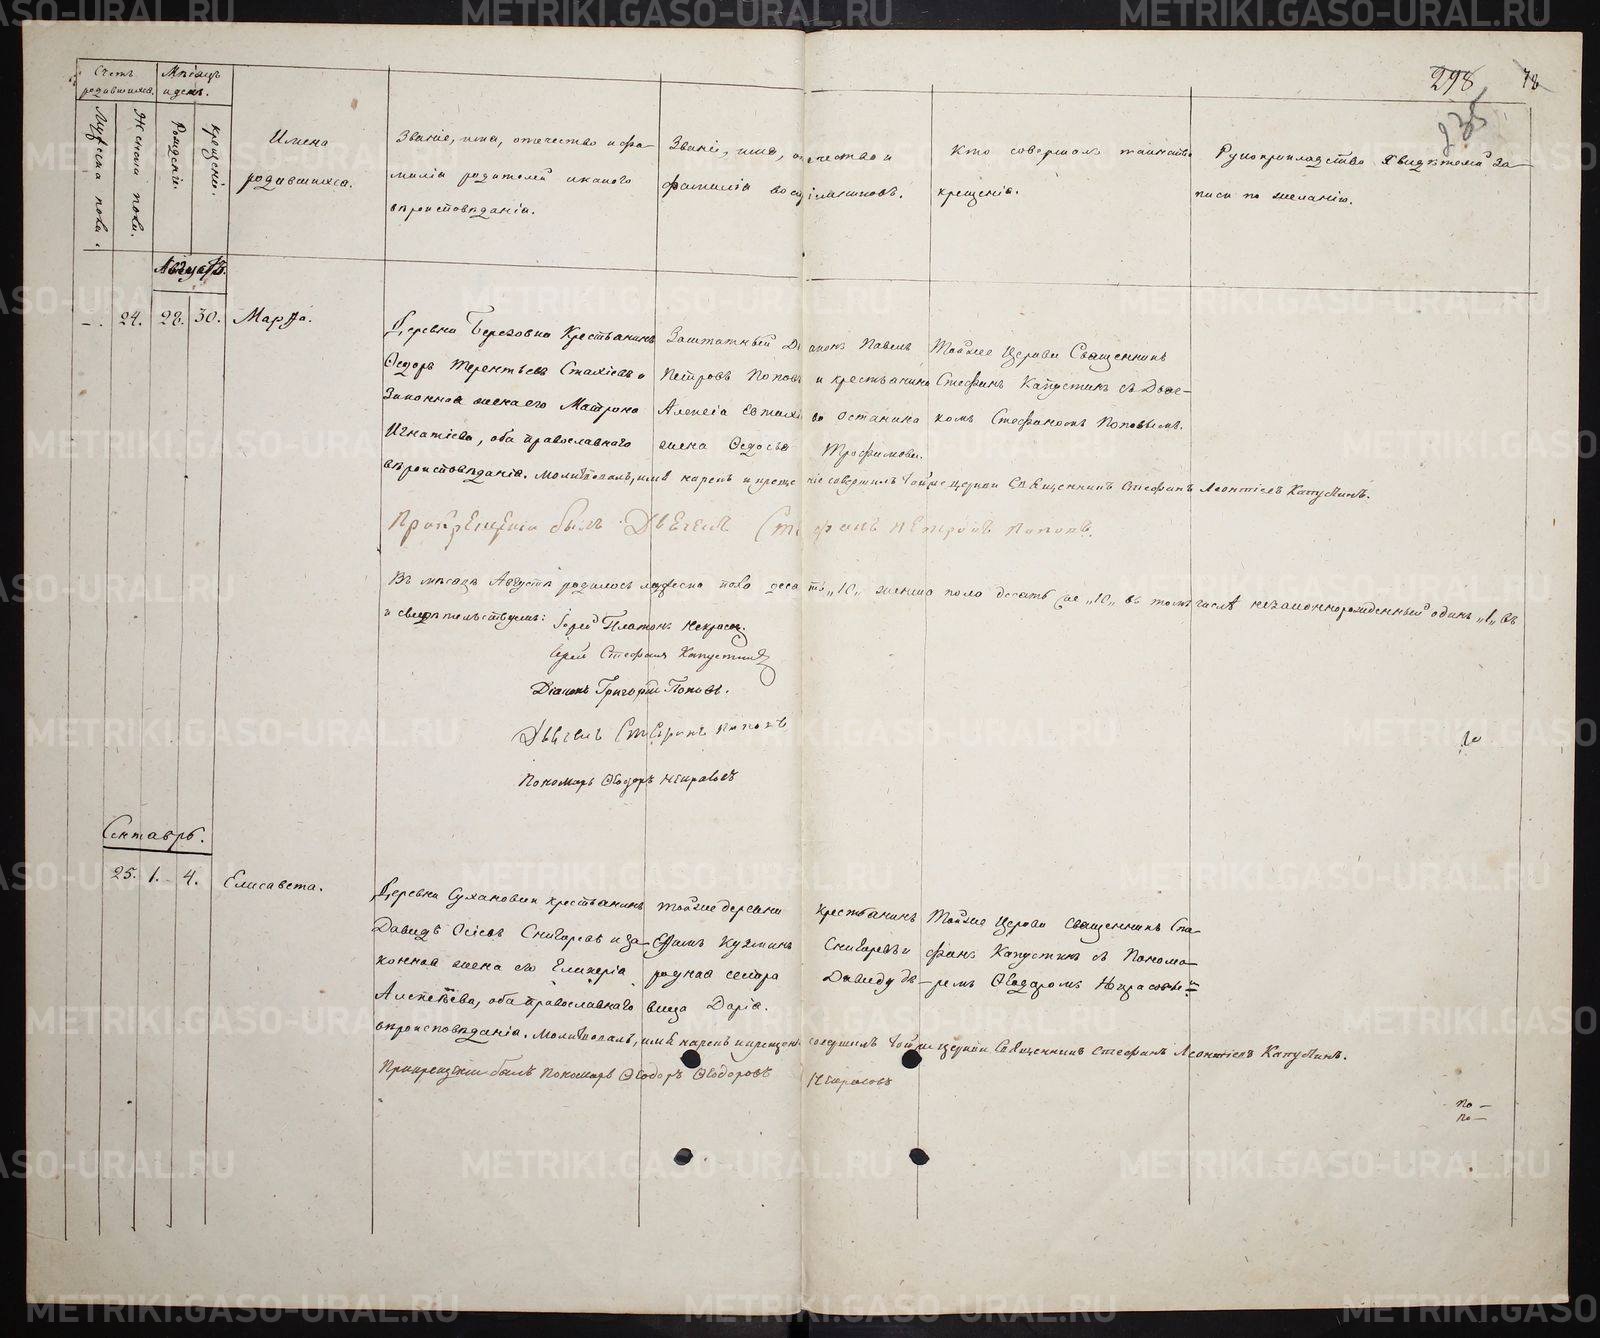 298 78
Счетъ родившихся.
Мѣсяцъ и день.
Мужеска пола.
Женска пола.
Рожденіе.
Крещеніе.
Имена родившихся.
Званіе, имя, отечество и фамилія родителей и какого вѣроисповѣданія.
Званіе, имя, отечество и фамилія воспріемниковъ.
Кто совершалъ таинство крещенія.
Рукоприкладство свидѣтелей записи по желанію.
Августъ.
24. 28. 30. Марѳа.
Деревни Березовки Крестьянинъ
Ѳедоръ Терентьевъ и
Законная жена его Матрона
Игнатіева, оба православнаго
вѣроисповѣданія.
Заштатный Діаконъ Павелъ
Петровъ Поповъ и крестьянина
Алексія Останина
жена Ѳедосья Трофимова.
Тойже Церкви Священникъ
Стефанъ Капустинъ съ Дьяч-
комъ Стефаномъ Поповымъ.
Молитвовалъ, имя нарекъ и крещеніе совершилъ тойже церкви Священникъ Стефанъ Леонтіевъ Капустинъ.
При крещеніи былъ Дьячекъ Стефанъ Петровъ Поповъ.
Въ мѣсяцѣ Августѣ родилось мужеска пола десять „10„ женска пола десять „10„ въ томъ числѣ незаконнорожденный одинъ „1„ въ
и свидѣтельствуемъ: Іерей Платонъ Некрасовъ.
Іерей Стефанъ Капустинъ
Діаконъ Григорій Поповъ.
Дьячекъ Стефанъ Поповъ
Пономарь Ѳеодоръ Некрасовъ
Сентябрь.
25. 1. 4. Елисавета.
Деревни Сухановки крестьянинъ
Давидъ Осіевъ Снигиревъ и за-
конная жена его Гликерія
Алексѣева, оба православнаго
вѣроисповѣданія.
тойже деревни крестьянинъ
Кузминъ Снигиревъ и
родная сестра Давиду дѣ-
вица Дарія.
Тойже Церкви Священникъ Сте-
фанъ Капустинъ съ Понома-
ремъ Ѳеодоромъ Некрасовымъ
Молитвовалъ, имя нарекъ и крещеніе совершилъ тойже церкви Священникъ Стефанъ Леонтіевъ Капустинъ.
При крещеніи былъ Пономарь Ѳеодоръ Ѳеодоровъ Некрасовъ
по —
по —
METRIKI.GASO-URAL.RU